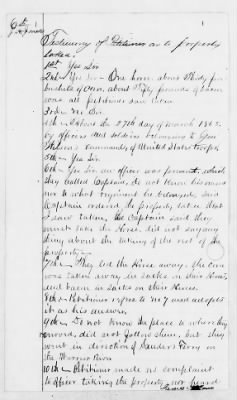 6th
Testimony of Petitioner as to property
taken.
1st Yes Sir
2nd Yes Sir - One horse, about thirty five
bushels of corn, about fifty pounds of bacon
were all petitioner saw taken
3rd No Sir
4th About the 27th day of March 1865.
by officers and soldiers belonging to Gen
commands of United States troops
5th Yes Sir
6th Yes Sir an officer was present, which
they called Captain, do not know his name
nor to what regiment he belonged, said
Captain ordered the property taken that
I saw taken, the Captain said they
must take the Horse, did not say any
thing about the taking of the rest of the
property
7th They led the Horse away, the corn
was taken away in sacks on their Horses
and bacon in sacks on their Horses.
8th Petitioner refers to No 7 and adopts it
as his answer,
9th Do not know the place to where they
moved, did not follow them, but they
went in direction of Sanders Ferry on
the Warrior River
10th Petitioner made no complaint
to officer taking the property, nor heard